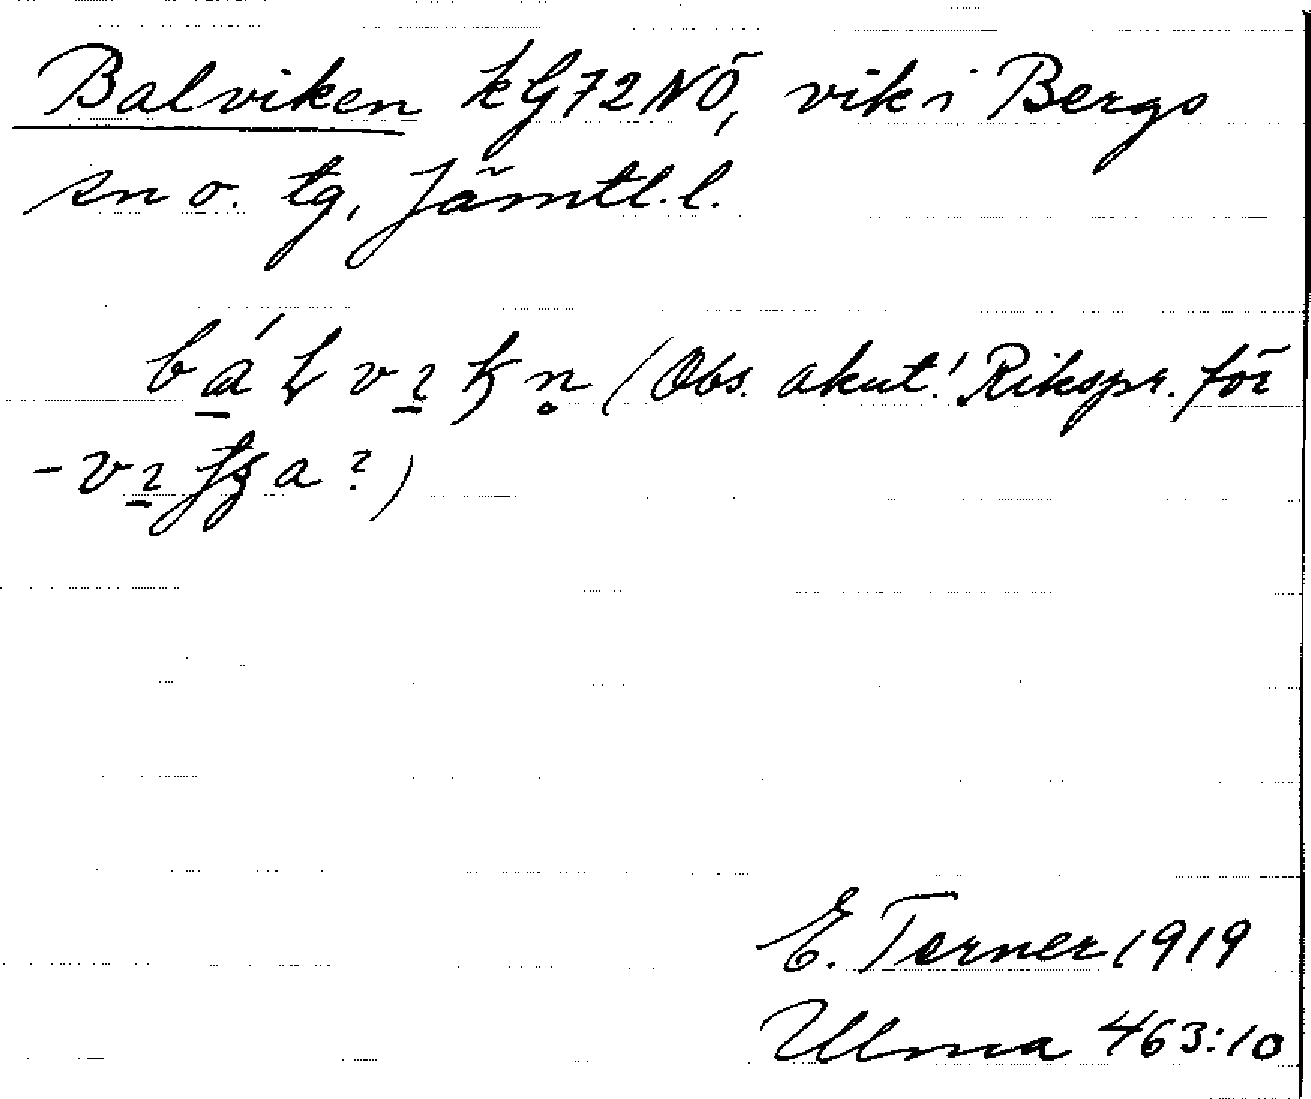 Balviken kG72NÖ, vik i Bergs
sn o. tg, Jämtl. l.
(Obs. akut! Rikspr. för
?)
E. Torner 1919
Ulma 463:10